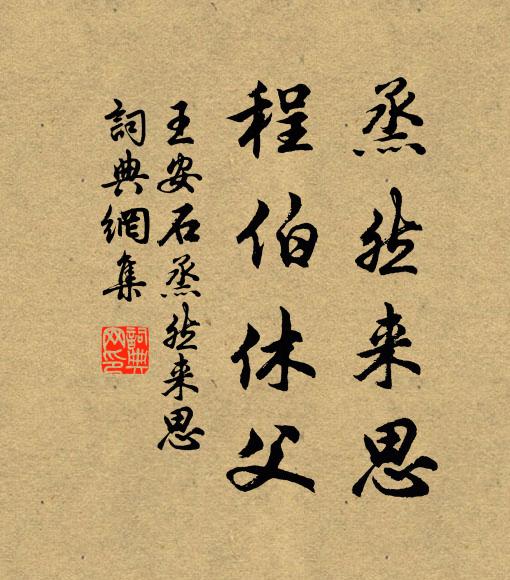 烝然来思
程伯休父
王安石烝然来思
詞典網集
詞典網印